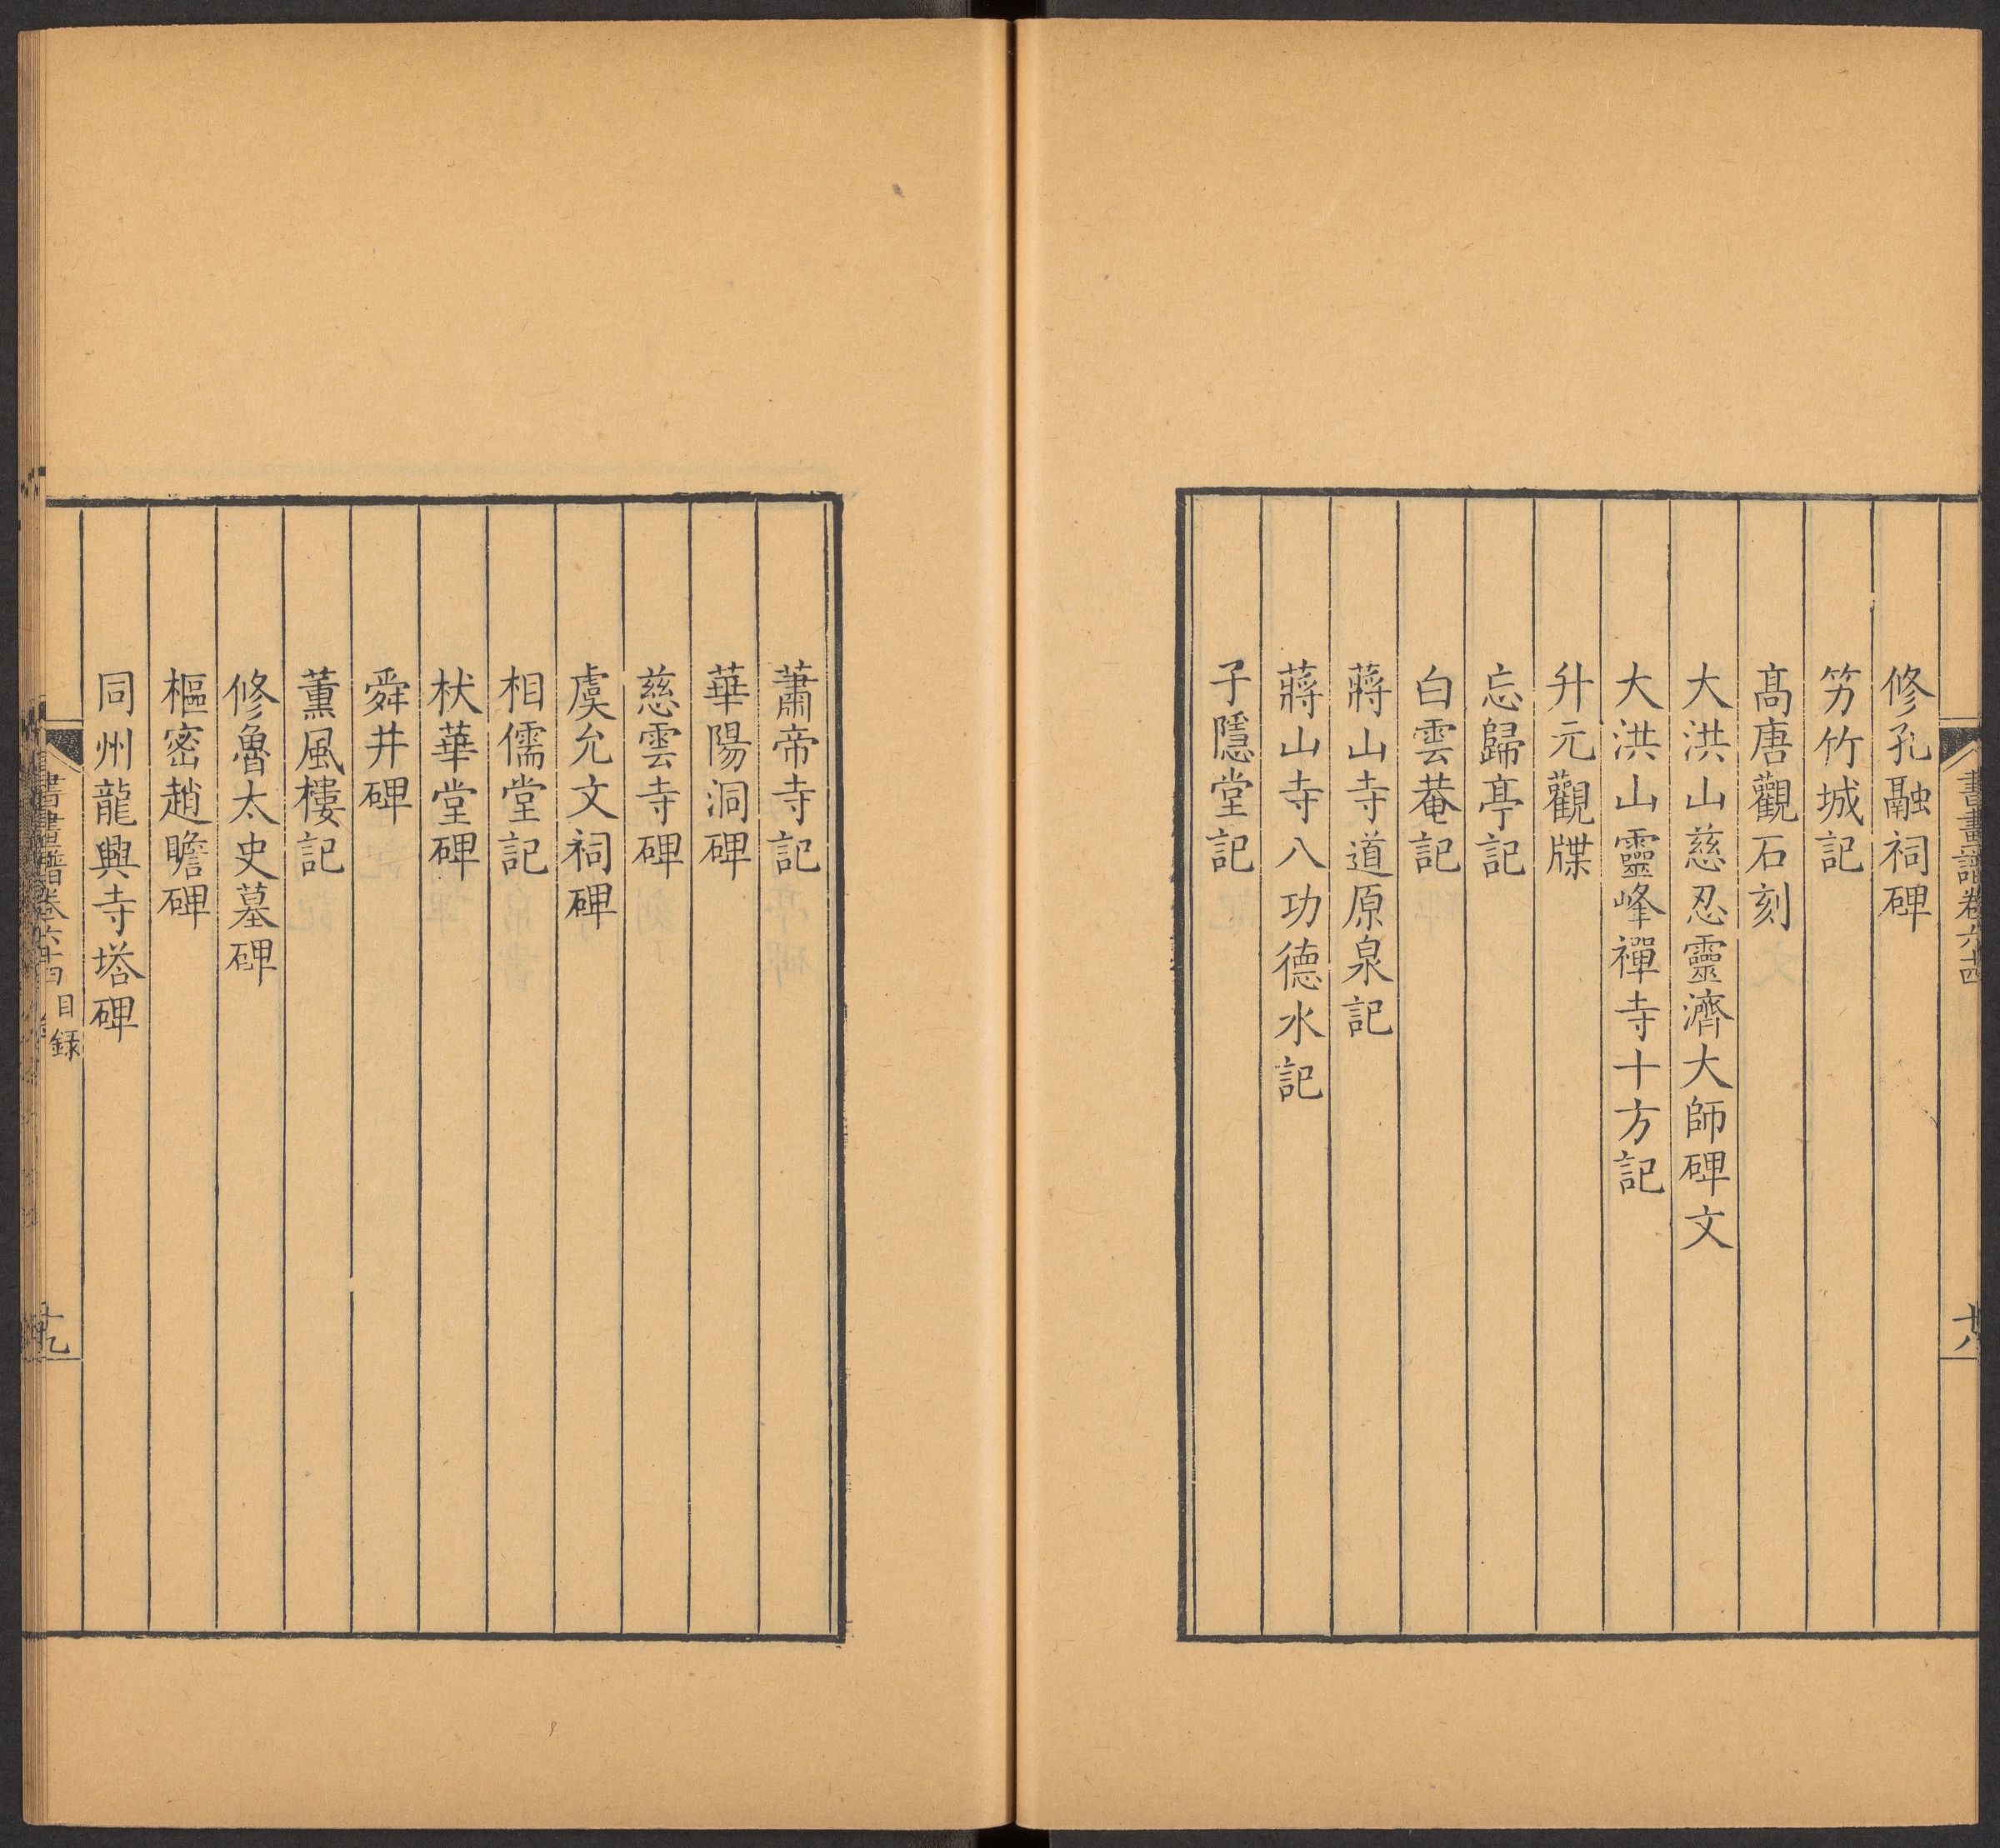 書畫譜卷六十四
十八
修孔融祠碑
竻竹城記
髙唐觀石刻
大洪山慈忍靈濟大師碑文
大洪山靈峰禪寺十方記
升元觀牒
忘歸亭記
白雲菴記
蔣山寺道原泉記
蔣山寺八功德水記
子隱堂記
蕭帝寺記
華陽洞碑
慈雲寺碑
虞允文祠碑
相儒堂記
杕華堂碑
舜井碑
薫風樓記
修魯太史墓碑
樞密趙瞻碑
同州龍興寺塔碑
書畫譜卷六十四 目録
十九